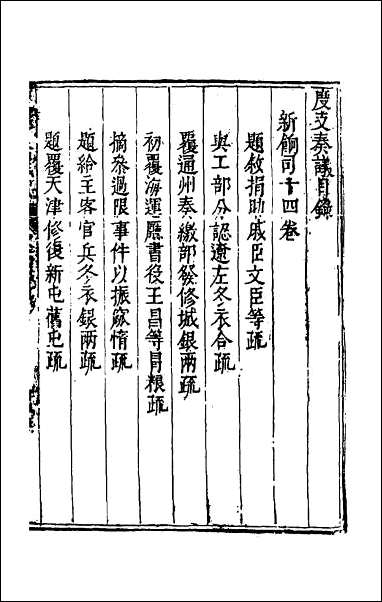 度支奏議目錄
新餉司十四卷
題敘捐助戚臣文臣等疏
與工部分認遼左冬衣合疏
覆通州奏繳部發修城銀兩疏
初覆海運廳書役王昌等冐粮疏
摘參過限事件以振窳惰疏
題給主客官兵冬衣銀兩疏
題覆天津修復新屯舊屯疏